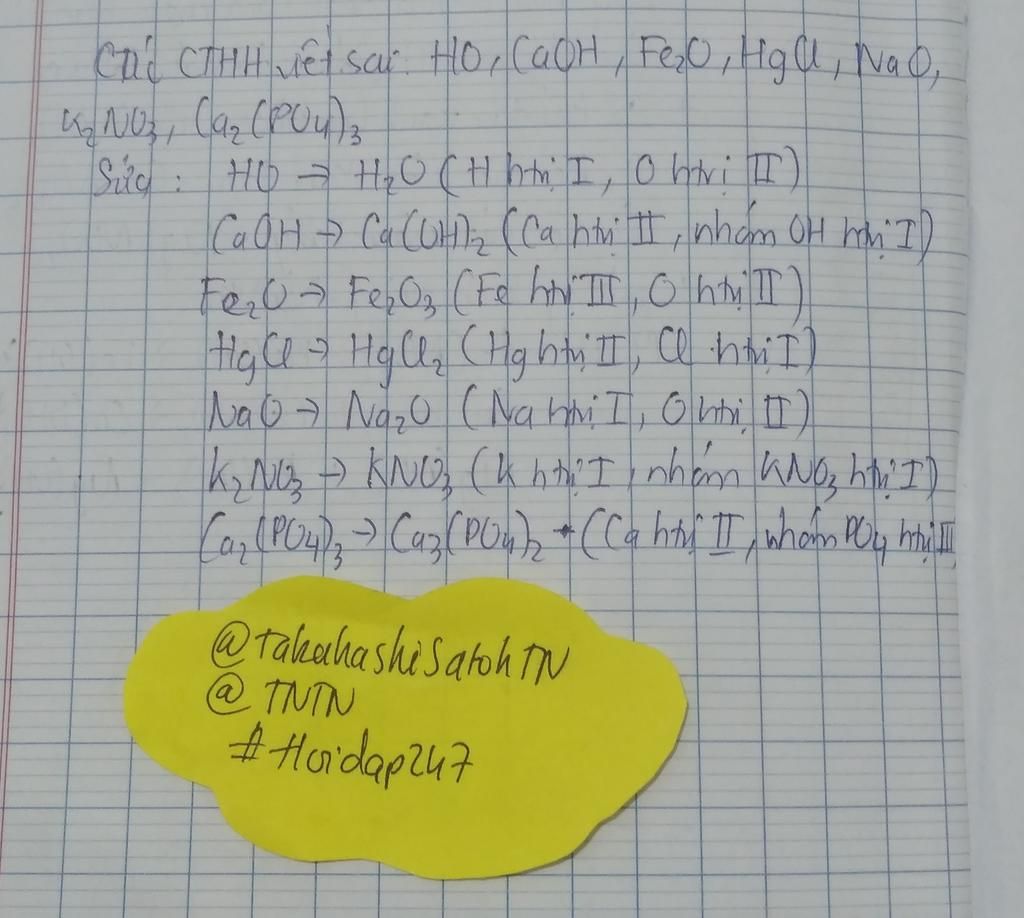 Các CTHH viết sai: HO, CaOH, Fe₂O, HgCl, NaO,
K₂NO₃, Ca₂(PO₄)₃
Sửa: HO → H₂O (H htrị I, O htrị II)
CaOH → Ca(OH)₂ (Ca htrị II, nhóm OH htrị I)
Fe₂O → Fe₂O₃ (Fe htrị III, O htrị II)
HgCl → HgCl₂ (Hg htrị II, Cl htrị I)
NaO → Na₂O (Na htrị I, O htrị II)
K₂NO₃ → KNO₃ (K htrị I, nhóm KNO₃ htrị I)
Ca₂(PO₄)₃ → Ca₃(PO₄)₂ (Ca htrị II, nhóm PO₄ htrị III
@takahashiSatohTN
@TNTN
#Hoidap247